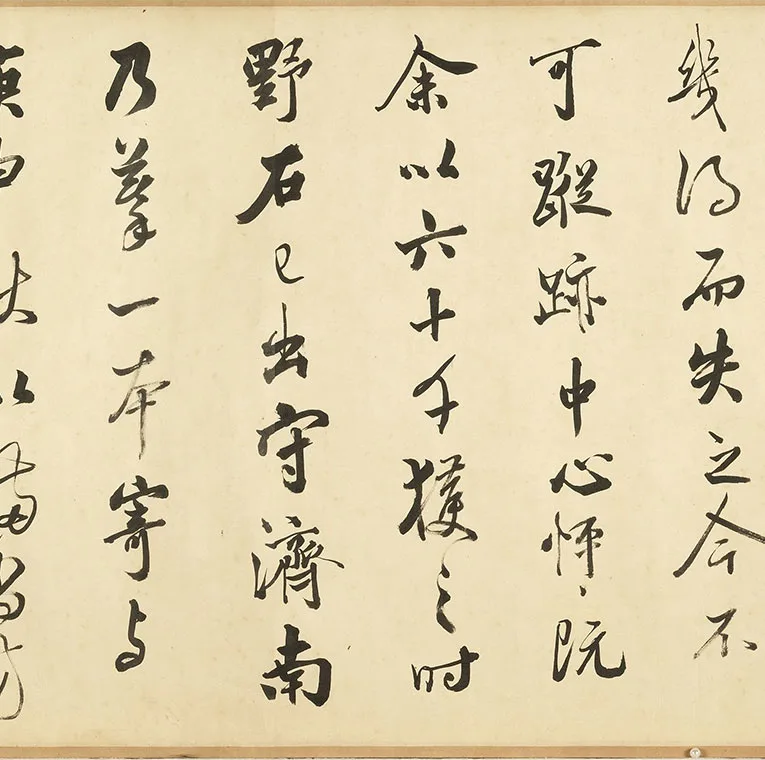 幾得而失之今不
可蹤跡中心怦怦既
余以六十千獲之時
野石已出守濟南
乃摹一本寄与